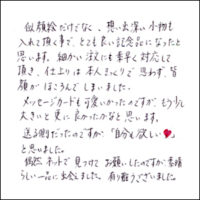 似顔絵だけでなく、想い出深い小物も
入れて頂く事で、とても良い記念品になったと
思います。細かい注文にも素早く対応して
頂き、仕上りは本人そっくりで思わず、皆
顔がほころんでしまいました。
メッセージカードも可愛いかったのですが、もう少し
大きいと更に良かったかなと思います。
送る側だったのですが、「自分も欲しい❤」
と思いました。
偶然ネットで見つけてお願いしたのですが、素晴
らしい一品に出会えました。有り難うございました。